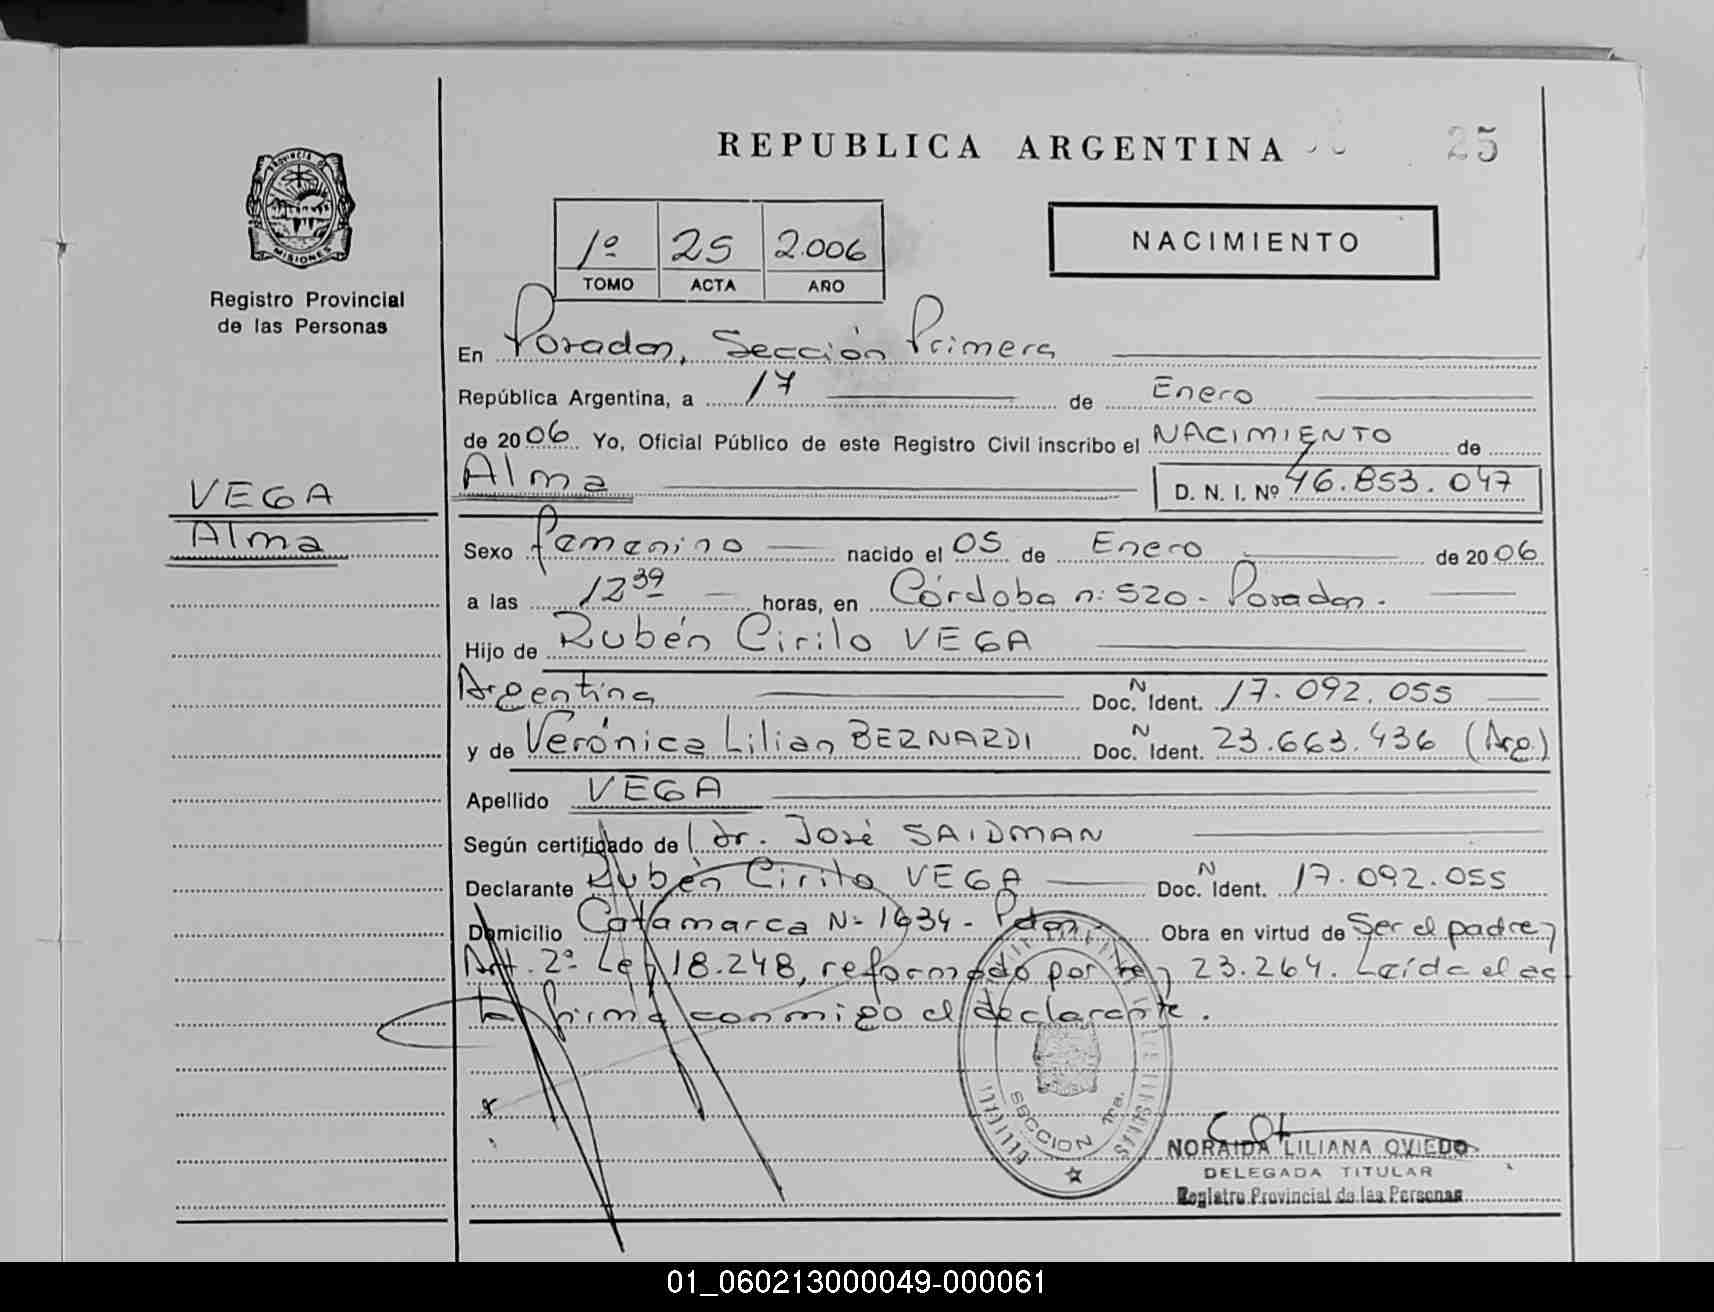 REPUBLICA ARGENTINA
25
PROVINCIA DE
MISIONES
Registro Provincial
de las Personas
1º 25 2.006
TOMO ACTA AÑO
NACIMIENTO
En Posadas, Sección Primera
República Argentina, a 17 de Enero
de 2006 Yo, Oficial Público de este Registro Civil inscribo el NACIMIENTO de
Alma D. N. I. Nº 46.853.047
VEGA
Alma
Sexo femenino nacido el 05 de Enero de 2006
a las 12 39 horas, en Córdoba n: 520 - Posadas.
Hijo de Rubén Cirilo VEGA
Argentina Doc. N Ident. 17.092.055
y de Verónica Lilian BERNARDI Doc. N Ident. 23.663.436 (Arg.)
Apellido VEGA
Según certificado de Dr. José SAIDMAN
Declarante Rubén Cirilo VEGA Doc. N Ident. 17.092.055
Domicilio Catamarca Nº 1634 - Pdas. Obra en virtud de Ser el padre y
Art. 2º Ley 18.248, reformado por ley 23.264. Leída el ac
ta firma conmigo el declarante.
SECCION 1ra.
NORAIDA LILIANA OVIEDO
DELEGADA TITULAR
Registro Provincial de las Personas
01_060213000049-000061